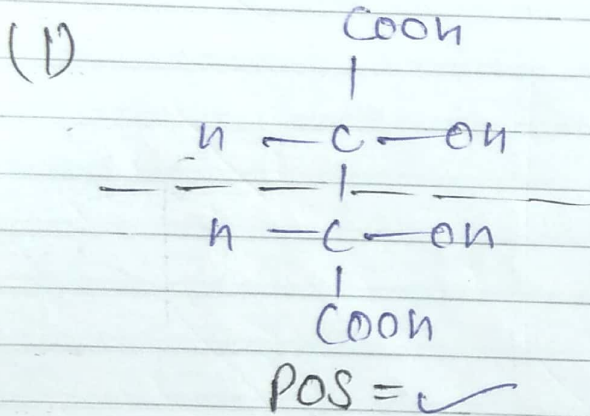 (1)
COOH
H - C - OH
H - C - OH
COOH
POS = ✓